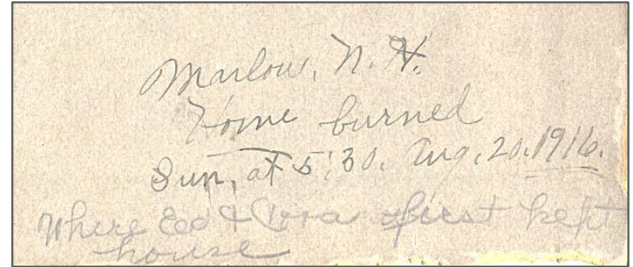 Marlow, N. H.
Home burned
Sun, at 5:30. Aug. 20. 1916.
Where Ed & Cora first kept
house